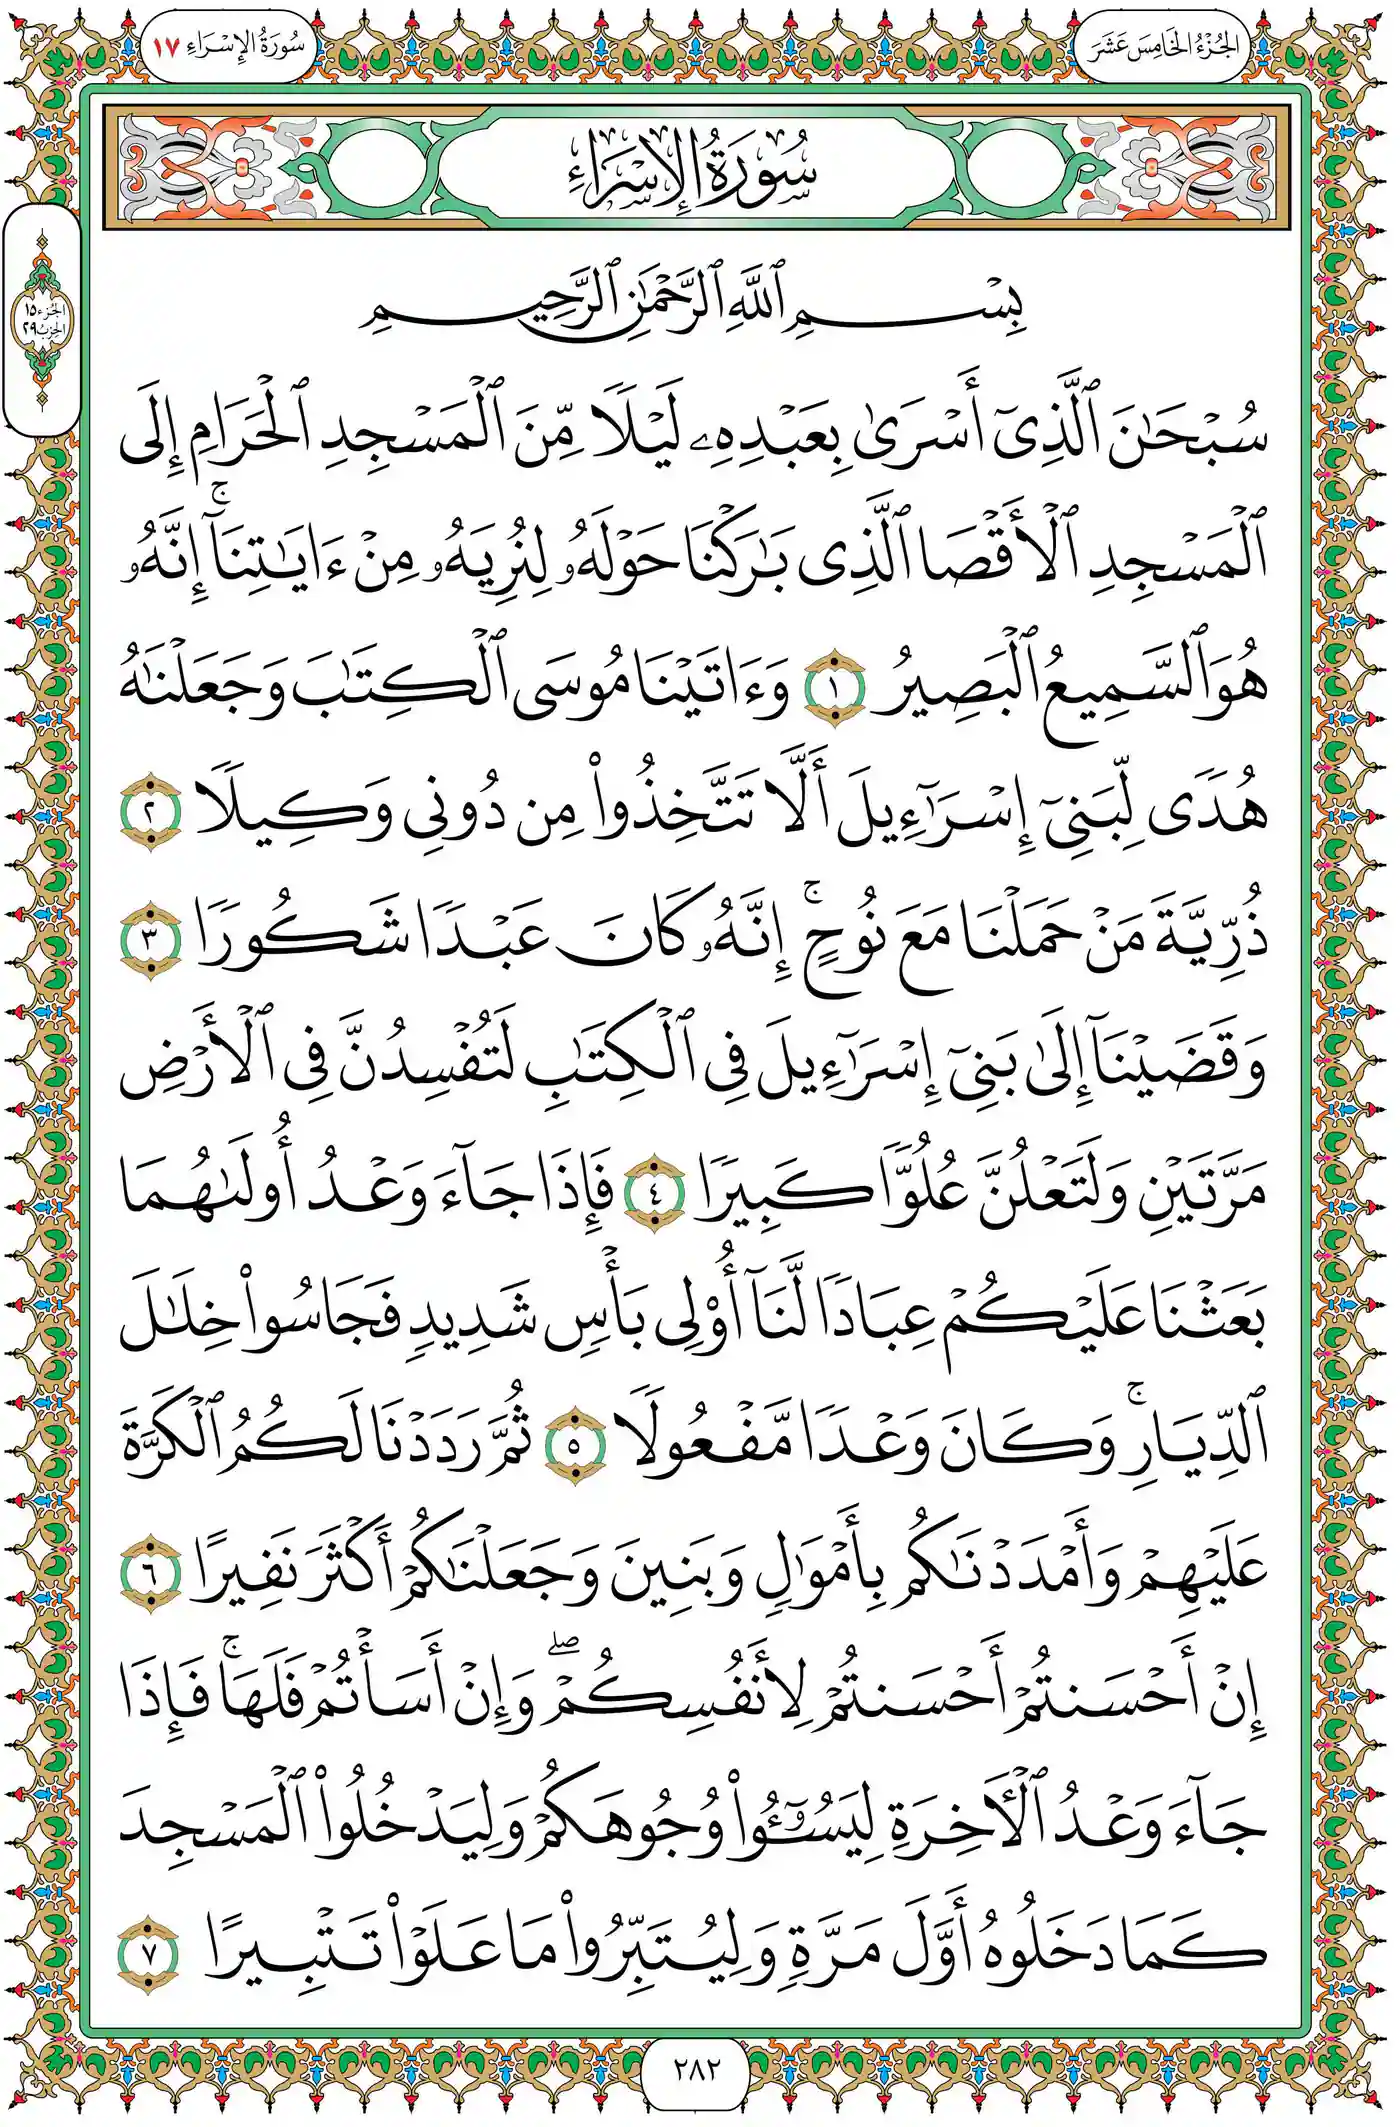 الجُزْءُ الخَامِسَ عَشَرَ
سُورَةُ الإِسْرَاءِ ١٧
سُورَةُ الإِسْرَاءِ
الجزء ١٥
الحزب ٢٩
بِسْمِ ٱللَّهِ ٱلرَّحْمَٰنِ ٱلرَّحِيمِ
سُبْحَٰنَ ٱلَّذِىٓ أَسْرَىٰ بِعَبْدِهِۦ لَيْلًا مِّنَ ٱلْمَسْجِدِ ٱلْحَرَامِ إِلَى
ٱلْمَسْجِدِ ٱلْأَقْصَا ٱلَّذِى بَٰرَكْنَا حَوْلَهُۥ لِنُرِيَهُۥ مِنْ ءَايَٰتِنَآ ۚ إِنَّهُۥ
هُوَ ٱلسَّمِيعُ ٱلْبَصِيرُ ١ وَءَاتَيْنَا مُوسَى ٱلْكِتَٰبَ وَجَعَلْنَٰهُ
هُدًى لِّبَنِىٓ إِسْرَٰٓءِيلَ أَلَّا تَتَّخِذُوا۟ مِن دُونِى وَكِيلًا ٢
ذُرِّيَّةَ مَنْ حَمَلْنَا مَعَ نُوحٍ ۚ إِنَّهُۥ كَانَ عَبْدًا شَكُورًا ٣
وَقَضَيْنَآ إِلَىٰ بَنِىٓ إِسْرَٰٓءِيلَ فِى ٱلْكِتَٰبِ لَتُفْسِدُنَّ فِى ٱلْأَرْضِ
مَرَّتَيْنِ وَلَتَعْلُنَّ عُلُوًّا كَبِيرًا ٤ فَإِذَا جَآءَ وَعْدُ أُولَىٰهُمَا
بَعَثْنَا عَلَيْكُمْ عِبَادًا لَّنَآ أُو۟لِى بَأْسٍ شَدِيدٍ فَجَاسُوا۟ خِلَٰلَ
ٱلدِّيَارِ ۚ وَكَانَ وَعْدًا مَّفْعُولًا ٥ ثُمَّ رَدَدْنَا لَكُمُ ٱلْكَرَّةَ
عَلَيْهِمْ وَأَمْدَدْنَٰكُم بِأَمْوَٰلٍ وَبَنِينَ وَجَعَلْنَٰكُمْ أَكْثَرَ نَفِيرًا ٦
إِنْ أَحْسَنتُمْ أَحْسَنتُمْ لِأَنفُسِكُمْ ۖ وَإِنْ أَسَأْتُمْ فَلَهَا ۚ فَإِذَا
جَآءَ وَعْدُ ٱلْءَاخِرَةِ لِيَسُۥٓـُٔوا۟ وُجُوهَكُمْ وَلِيَدْخُلُوا۟ ٱلْمَسْجِدَ
كَمَا دَخَلُوهُ أَوَّلَ مَرَّةٍ وَلِيُتَبِّرُوا۟ مَا عَلَوْا۟ تَتْبِيرًا ٧
٢٨٢